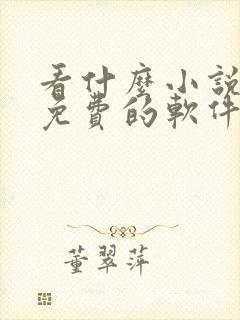 看什麼小說
免費的軟件
董翠萍